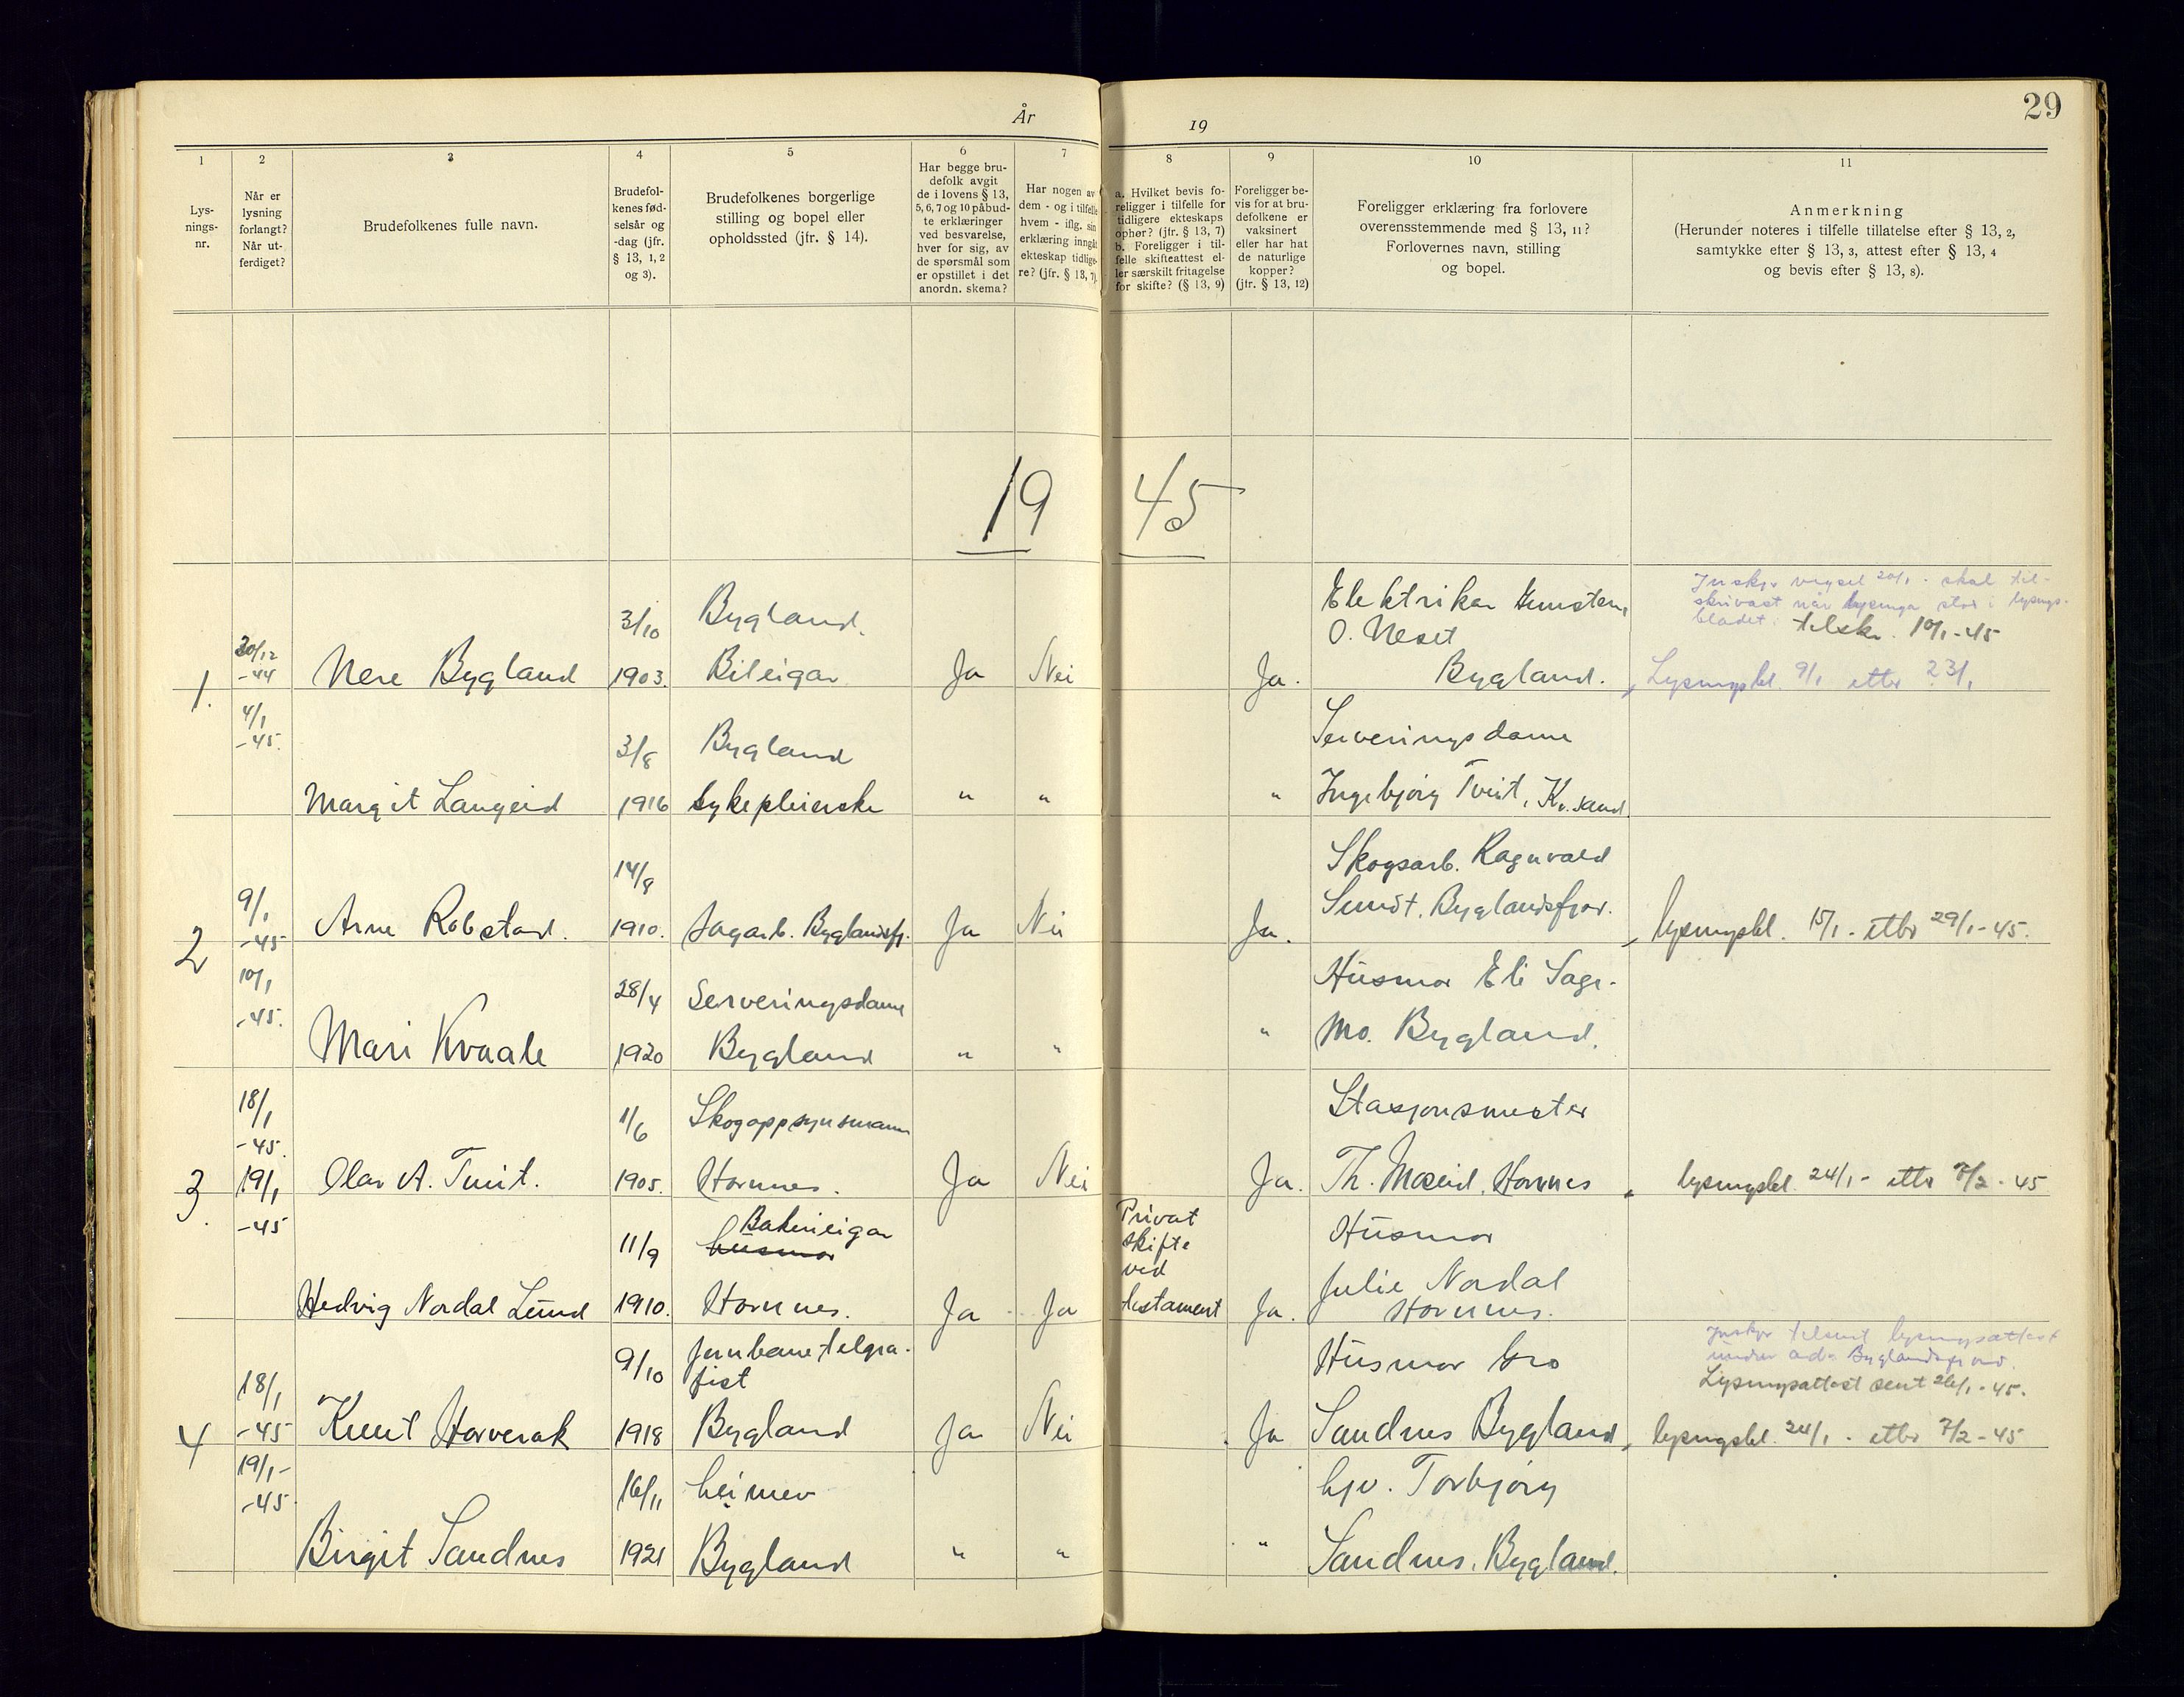 År 19
29
1
Lys-
nings-
nr.
2
Når er
lysning
forlangt?
Når ut-
ferdiget?
3
Brudefolkenes fulle navn.
4
Brudefol-
kenes fød-
selsår og
-dag (jfr.
§ 13, 1, 2
og 3).
5
Brudefolkenes borgerlige
stilling og bopel eller
opholdssted (jfr. § 14).
6
Har begge bru-
defolk avgit
de i lovens § 13,
5, 6, 7 og 10 påbud-
te erklæringer
ved besvarelse,
hver for sig, av
de spørsmål som
er opstillet i det
anordn. skema?
7
Har nogen av
dem - og i tilfelle
hvem - iflg. sin
erklæring inngåt
ekteskap tidlige-
re? (jfr. § 13, 7)
8
a. Hvilket bevis fo-
religger i tilfelle for
tidligere ekteskaps
ophør? (jfr. § 13, 7)
b. Foreligger i til-
felle skifteattest el-
ler særskilt fritagelse
for skifte? (§ 13, 9)
9
Foreligger be-
vis for at bru-
defolkene er
vaksinert
eller har hat
de naturlige
kopper?
(jfr. § 13, 12)
10
Foreligger erklæring fra forlovere
overensstemmende med § 13, 11?
Forlovernes navn, stilling
og bopel.
11
Anmerkning
(Herunder noteres i tilfelle tillatelse efter § 13, 2,
samtykke efter § 13, 3, attest efter § 13, 4
og bevis efter § 13, 8).
19 45
1.
30/12
-44
4/1
-45.
Nere Bygland
3/10
1903.
Bygland.
Bileigar
Ja
Nei
Ja.
Elektriker Gunstein
O. Neset
Bygland.
skal til-
skrivast når lysinga står i lysings-
bladet. tilskr. 10/1-45
Lysingsbl. 9/1 etter 23/1
Margit Langeid
3/8
1916
Bygland
Sykepleierske
"
"
"
Serveringsdame
Ingebjørg Tveit, Kr.sand.
2
9/1
-45
10/1
-45.
Arne Robstad.
14/8
1910.
Sagarb. Byglandsfj.
Ja
Nei
Ja.
Skogsarb. Ragnvald
Sundt. Byglandsfjor.
lysingsbl. 15/1 - etter 29/1-45.
Mari Kvaale
28/4
1920
Serveringsdame
Bygland
"
"
"
Husmor Eli Sage-
mo. Bygland.
3.
18/1
-45.
19/1
-45
Olav A. Tveit.
1/6
1905.
Skogoppsynsmann
Hornnes.
Ja
Nei
Ja.
Stasjonsmester
Th. Moseid, Hornnes
lysingsbl. 24/1 - etter 7/2 - 45
Hedvig Nordal Lund
11/9
1910.
Bakerieigar
husmor
Hornnes.
Ja
Ja
Privat
skifte
ved
testament
Ja.
Husmor
Julie Nordal
Hornnes.
4
18/1
-45
19/1-
-45.
Knut Horverak
9/10
1918
Jernbanetelgra-
fist
Bygland
Ja
Nei
Ja
Husmor Gro
Sandnes Bygland
tilsendt lysingsattest
under adr. Byglandsfjord.
Lysingsattest sent 26/1-45.
lysingsbl. 24/1 - etter 7/2-45
Birgit Sandnes
16/11
1921
heimev
Bygland
"
"
"
hjv. Torbjørg
Sandnes, Bygland.